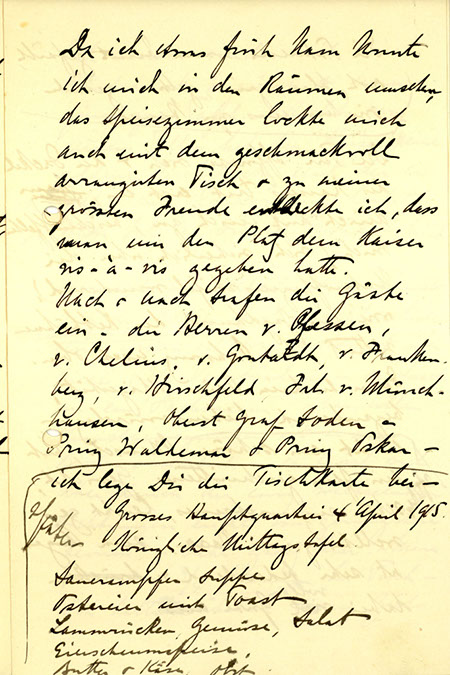 Da ich etwas früh kam konnte
ich mich in den Räumen umsehen,
das Speisezimmer lockte mich
auch mit dem geschmackvoll
arrangirten Tisch & zu meiner
grössten Freude entdeckte ich, dass
man mir den Platz dem Kaiser
vis-à-vis gegeben hatte.
Nach & nach trafen die Gäste
ein - die Herren v.
v. Chelius, v. v. Franken-
berg, v. Hirschfeld, Frh. v. Münch-
hausen, Oberst Graf Soden -
Prinz Waldemar & Prinz Oskar -
ich lege Dir die Tischkarte bei -
Grosses Hauptquartier 4 April 1915.
später Königliche Mittagstafel
Sauerampfer Suppe
Ostereier mit Toast
Lammrücken, Gemüse, Salat
Eierschaumspeise,
Butter & Käse, Obst